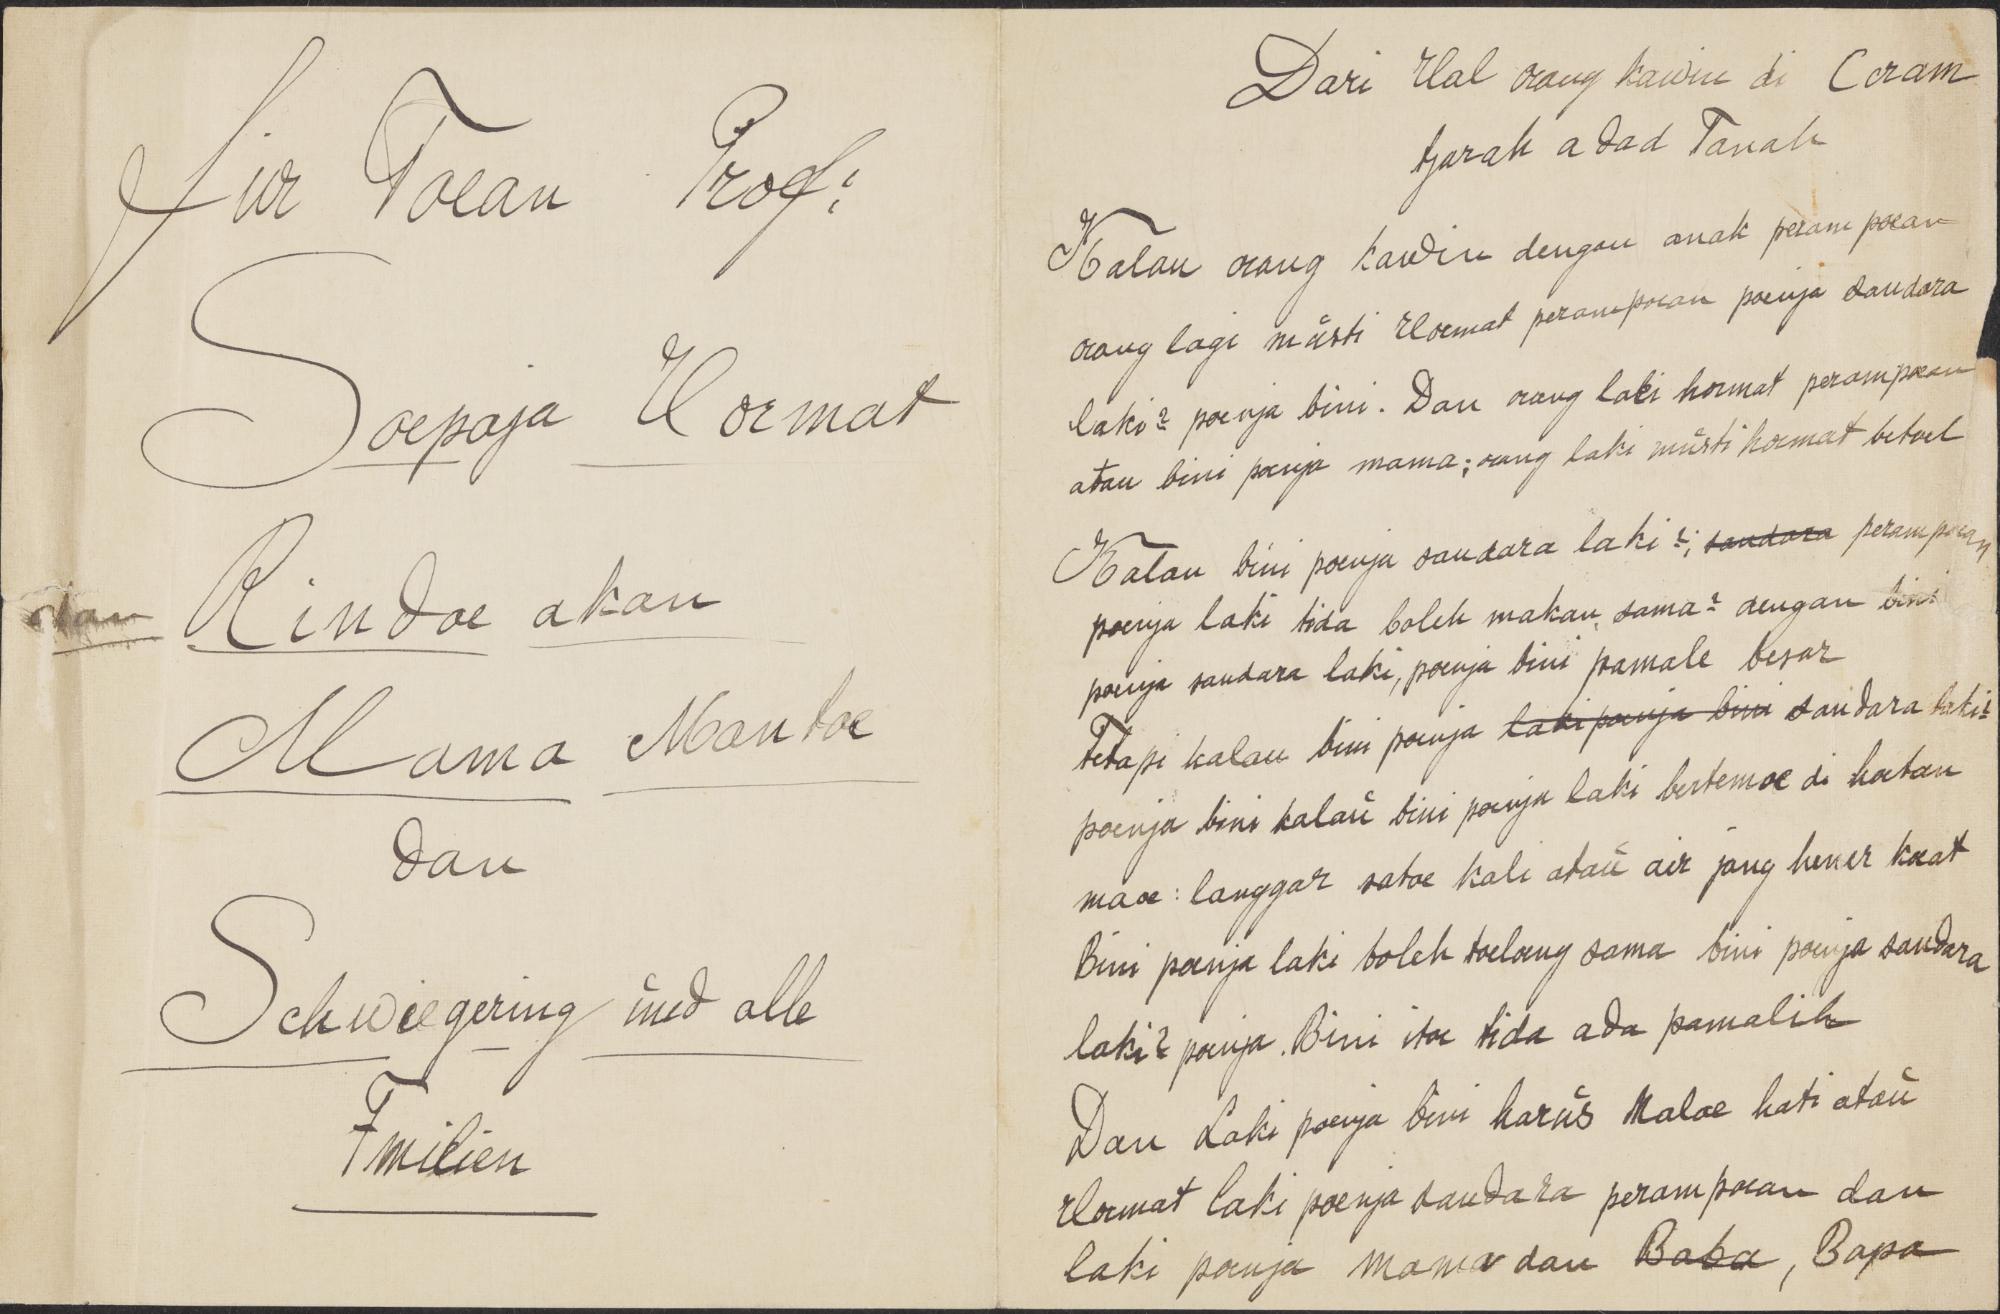 für Toean Prof:
Soepaja Hormat
dan Rindoe akan
Mama Mantoe
dan
Schwiegering ŭnd alle
Fmilien
Dari Hal orang kawin di Ceram
tjarah adad Tanah
Kalau orang kawin dengan anak perampoean
orang lagi mŭsti Hormat perampoean poenja saudara
laki² poenja bini. Dan orang laki hormat perampoean
atau bini poenja mama; orang laki mŭsti hormat betoel
Kalau bini poenja saudara laki²; saudara perampoean
poenja laki tida boleh makan sama² dengan bini
poenja saudara laki, poenja bini pamale besar
Tetapi kalau bini poenja laki poenja bini saudara laki²
poenja bini kalaŭ bini poenja laki bertemoe di hoetan
maoe: langgar satoe kali ataŭ air jang hener koeat
Bini poenja laki boleh toeloeng sama bini poenja saudara
laki² poenja. Bini itoe tida ada pamalih
Dan Laki poenja bini harŭs Maloe hati ataŭ
Hormat laki poenja saudara perampoean dan
laki poenja mama dan Baba, Bapa